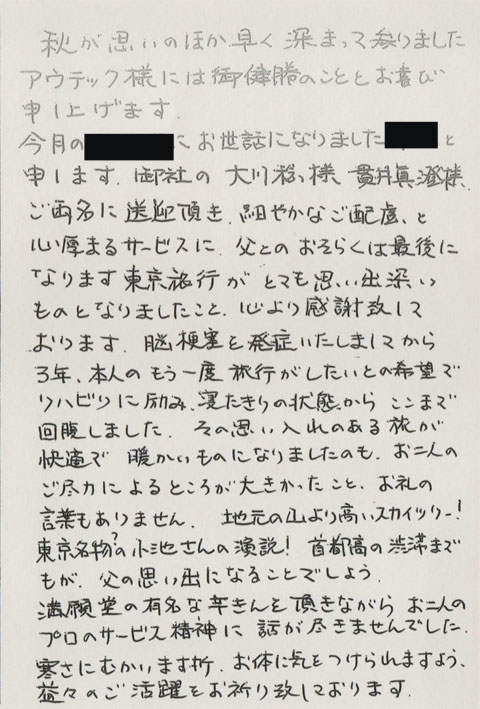 秋が思いのほか早く深まって参りました
アウテック様には御健勝のこととお喜び
申し上げます.
今月の にお世話になりました と
申します. 御社の 大川 様、貫井真澄様、
ご両名に送迎頂き、細やかなご配慮、と
心厚まるサービスに、父とのおそらくは最後に
なります東京旅行が とても思い出深い
ものとなりましたこと、心より感謝致して
おります. 脳梗塞を発症いたしましてから
3年、本人のもう一度旅行がしたいとの希望で
リハビリに励み、寝たきりの状態からここまで
回復しました. その思い入れのある旅が
快適で 暖かいものになりましたのも、お二人の
ご尽力によるところが大きかったこと、お礼の
言葉もありません. 地元の山より高いスカイツリー!
東京名物?の小池さんの演説! 首都高の渋滞まで
もが、父の思い出になることでしょう.
満願堂の有名な芋きんを頂きながら お二人の
プロのサービス精神に 話が尽きませんでした.
寒さにむかいます折、お体に気をつけられますよう、
益々のご活躍をお祈り致しております.